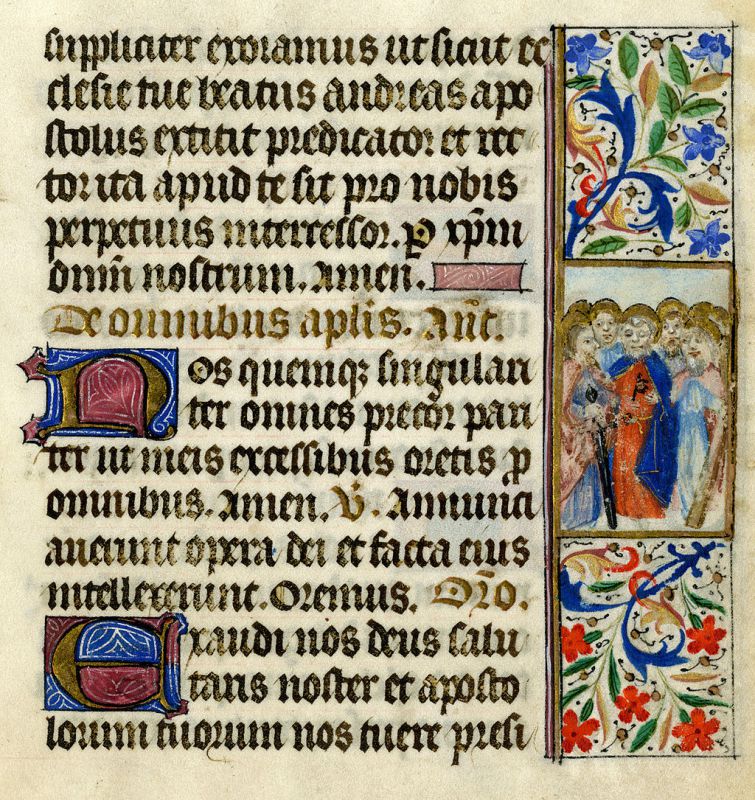 suppliciter exoramus ut sicut ec
clesie tue beatus andreas apo
stolus extitit predicator et rec
tor ita apud te sit pro nobis
perpetuus intercessor. p xp̄m
dnm̄ nostrum. Amen.
De omnibus aplis. Ant̄.
Nos quemqꝫ singulari
ter omnes precor pari
ter ut meis excessibus oretis p
omnibus. Amen. V̄. Annunci
auerunt opera dei et facta eius
intellexerunt. Oremus. Orō.
Exaudi nos deus salu
taris noster et aposto
lorum tuorum nos tuere presi